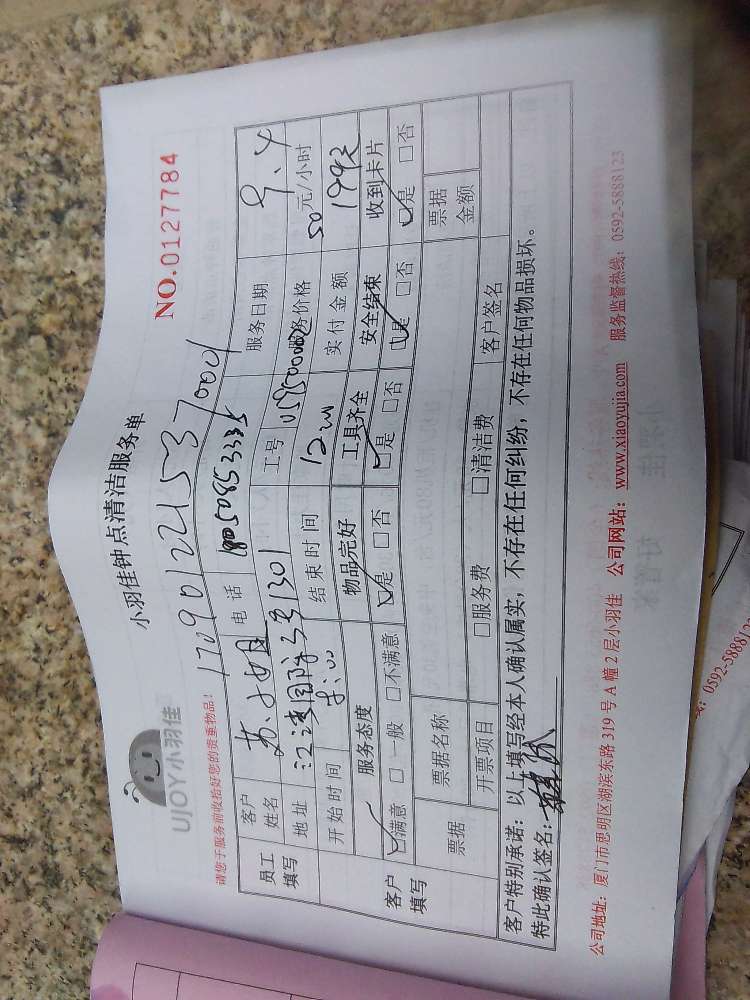 小羽佳钟点清洁服务单
UJOY小羽佳
NO.0127784
请您于服务前收拾好您的贵重物品!
员工填写 客户姓名 苏小姐 电话 服务日期 9.4
地址 工号 服务价格 50 元/小时
开始时间 结束时间 实付金额
客户填写 服务态度 物品完好 工具齐全 安全结束 收到卡片
☑满意 □一般 □不满意 ☑是 □否 ☑是 □否 ☑是 □否 ☑是 □否
票据 票据名称 票据金额
开票项目 □服务费 □清洁费 客户签名
客户特别承诺:以上填写经本人确认属实,不存在任何纠纷,不存在任何物品损坏。
特此确认签名:
公司地址:厦门市思明区湖滨东路 319 号 A 幢 2 层小羽佳 公司网站:www.xiaoyujia.com 服务监督热线:0592-5888123
:0592-5888123